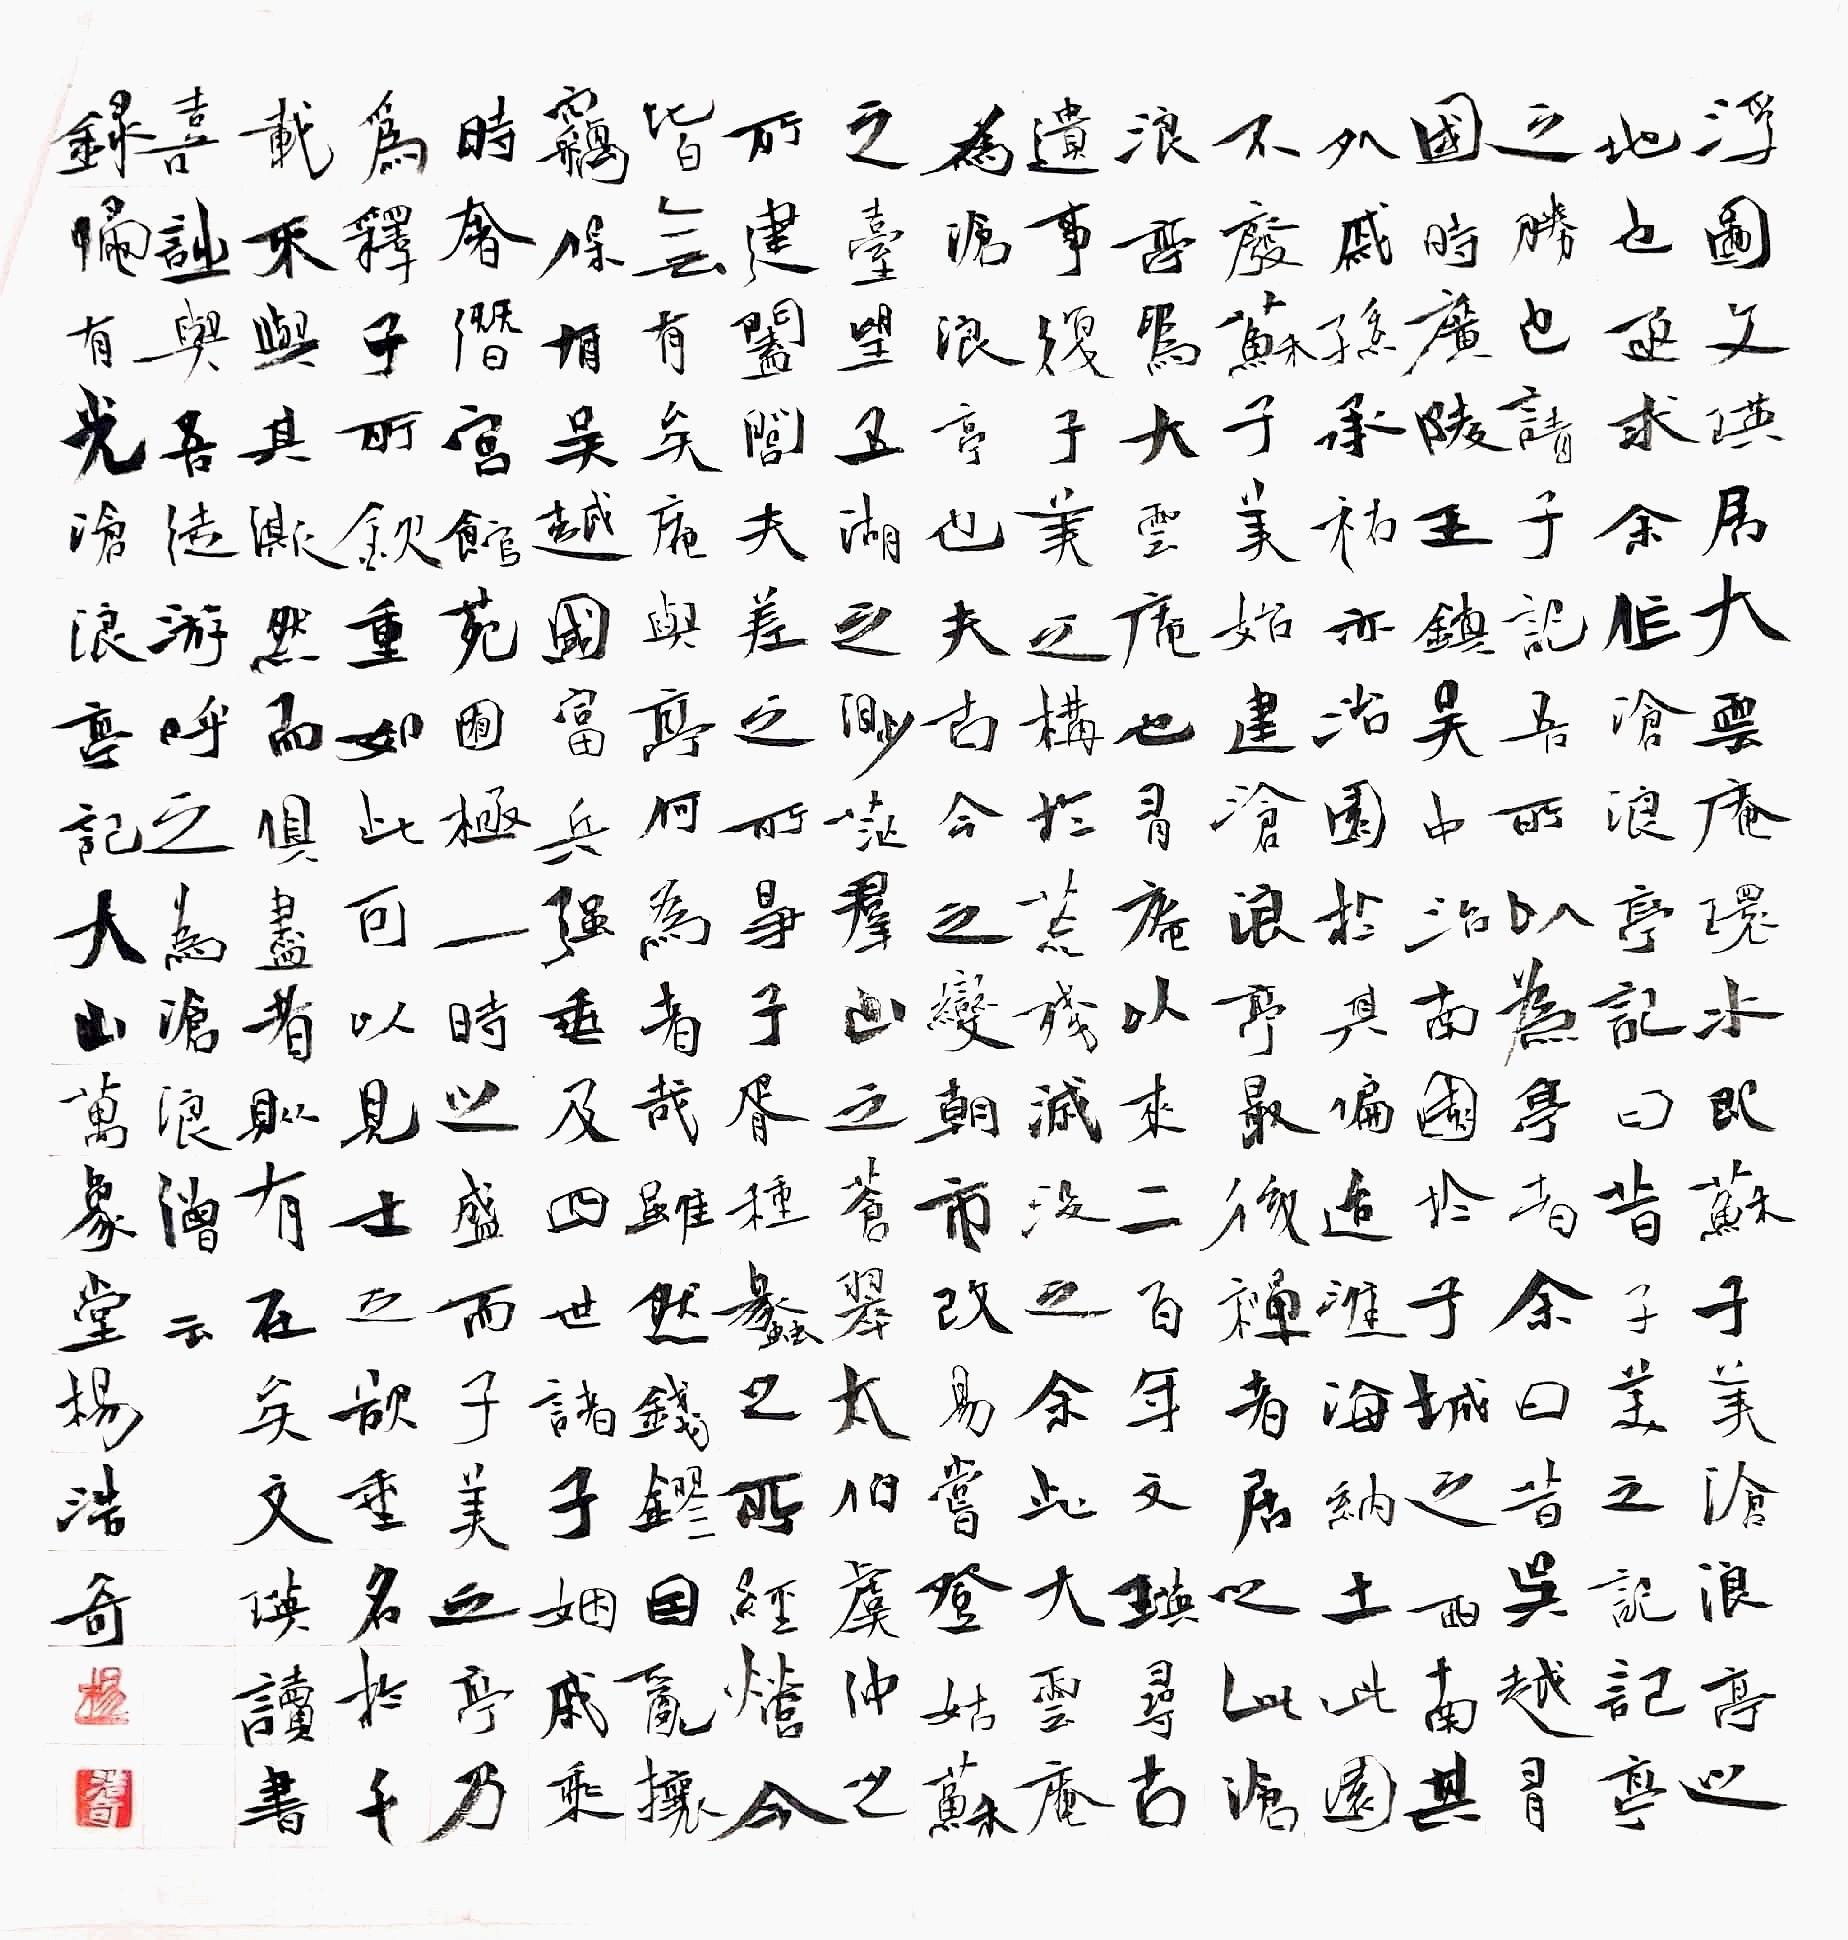 浮圖文瑛居大雲庵環水即蘇子美滄浪亭之
地也亟求余作滄浪亭記曰昔子美之記記亭
之勝也請子記吾所以為亭者余曰昔吳越有
國時廣陵王鎮吳中治南園於子城之西南其
外戚孫承祐亦治園於其偏迨淮海納土此園
不廢蘇子美始建滄浪亭最後禪者居之此滄
浪亭爲大雲庵也有庵以來二百年文瑛尋古
遺事復子美之構於荒殘滅没之余此大雲庵
為滄浪亭也夫古今之變朝市改易嘗登姑蘇
之臺望五湖之渺茫羣山之蒼翠太伯虞仲之
所建闔閭夫差之所爭子胥種蠡之所經營今
皆無有矣庵與亭何為者哉雖然錢鏐因亂攘
竊保有吳越國富兵强垂及四世諸子姻戚乘
時奢僭宮館苑囿極一時之盛而子美之亭乃
爲釋子所欽重如此可以見士之欲垂名於千
載不與其澌然而俱盡者則有在矣文瑛讀書
喜詩與吾徒游呼之為滄浪僧云
録歸有光滄浪亭記大山萬象堂楊浩奇
楊
浩奇